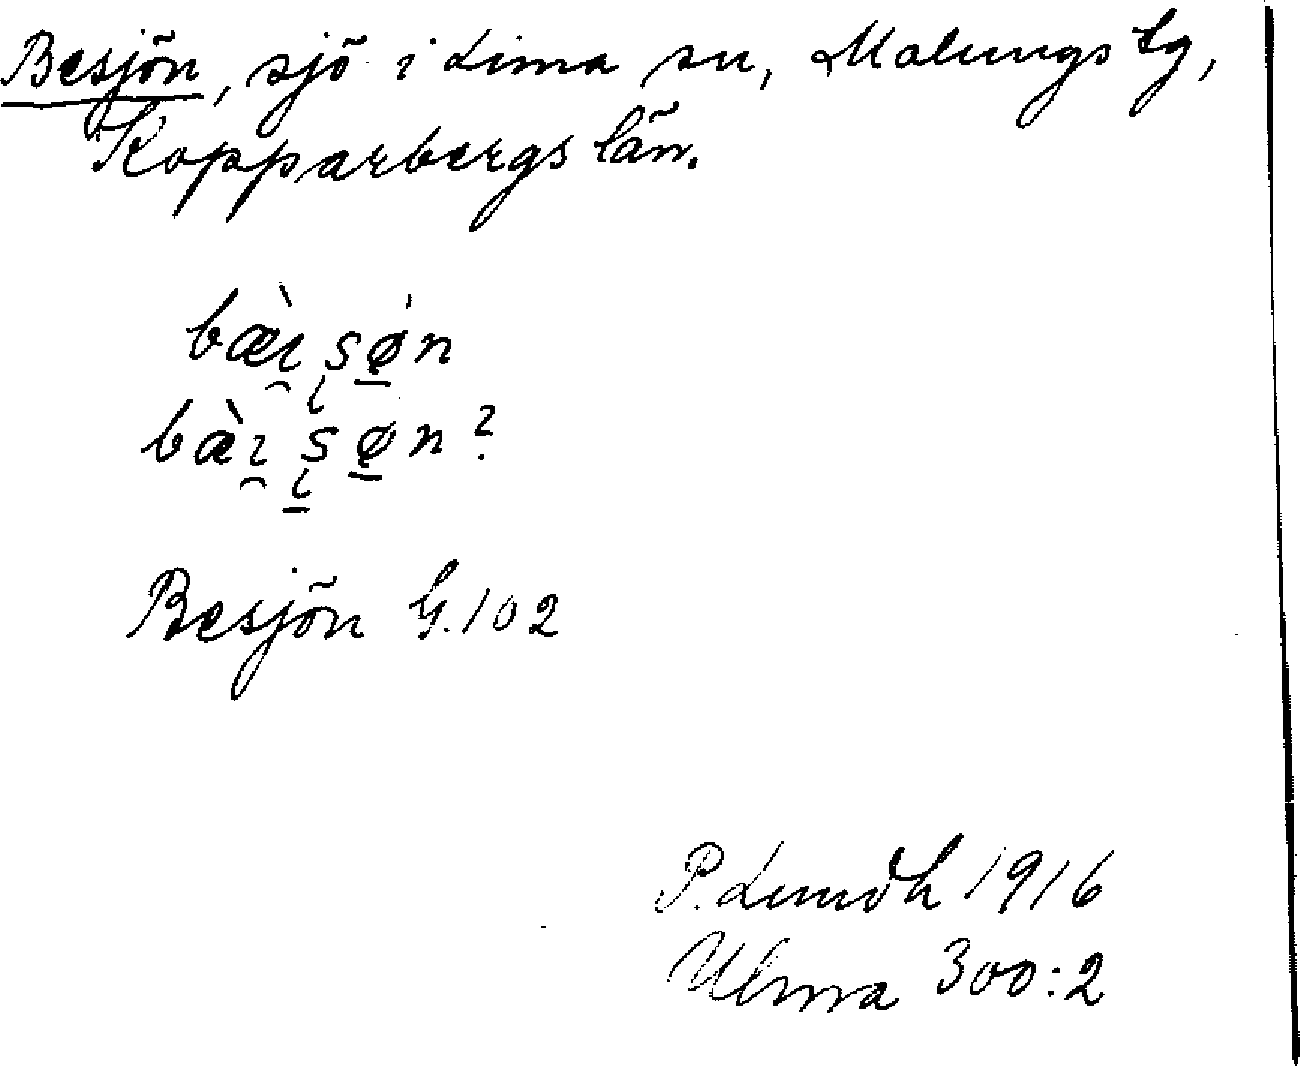 Besjön, sjö i Lima sn, Malungs tg,
Kopparbergs län.
bæ̀ɪ̯ʂǿ̠n
bæ̀ɪ̯ʂø̠n?
Besjön G.102
P. Lindh 1916
Ulma 300:2